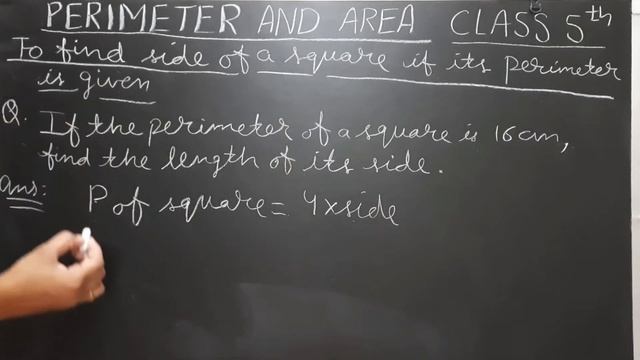 PERIMETER AND AREA CLASS 5th
To find side of a square if its perimeter
is given
Q. If the perimeter of a square is 16 cm,
find the length of its side.
Ans: P of square = 4 x side